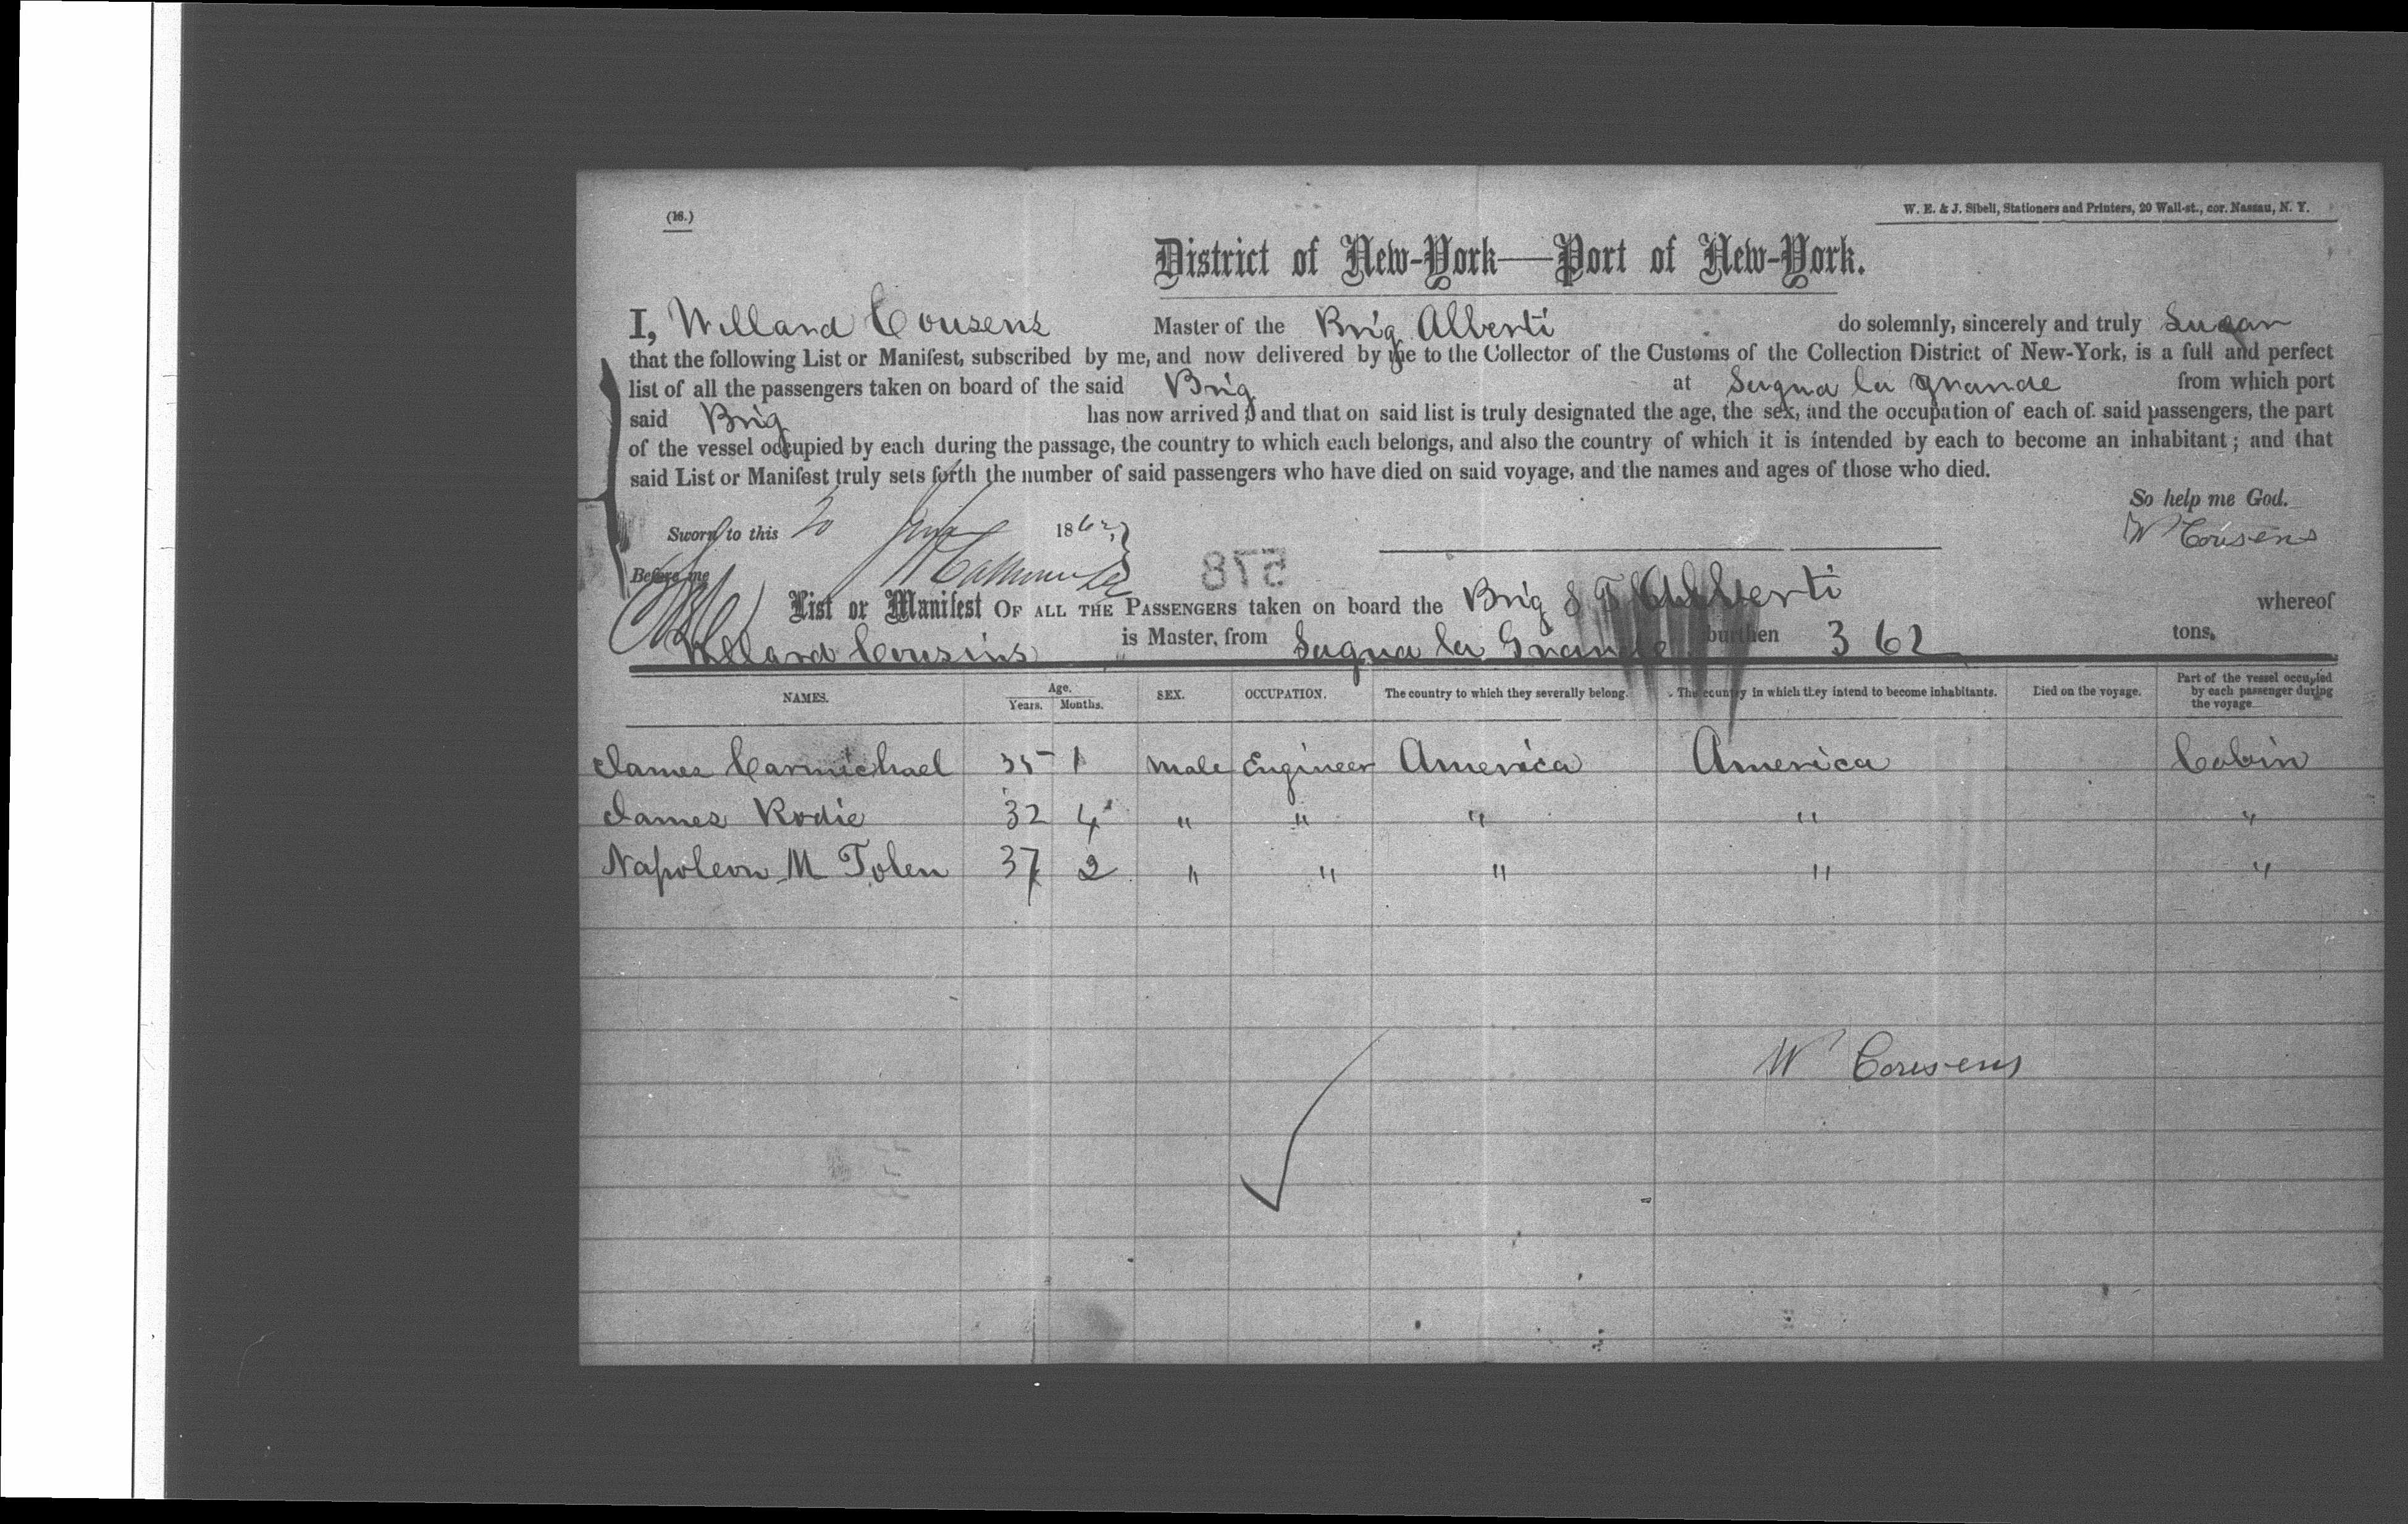 (16.)
W. E. & J. Sibell, Stationers and Printers, 20 Wall-st., cor. Nassau, N. Y.
District of New-York—Port of New-York.
I, Willard Cousens Master of the Brig Alberti do solemnly, sincerely and truly
that the following List or Manifest, subscribed by me, and now delivered by me to the Collector of the Customs of the Collection District of New-York, is a full and perfect
list of all the passengers taken on board of the said Brig at Sagua la Grande from which port
said Brig has now arrived; and that on said list is truly designated the age, the sex, and the occupation of each of said passengers, the part
of the vessel occupied by each during the passage, the country to which each belongs, and also the country of which it is intended by each to become an inhabitant; and that
said List or Manifest truly sets forth the number of said passengers who have died on said voyage, and the names and ages of those who died.
So help me God.
Sworn to this 20 June 1862
W Cousens
Before me
578
List or Manifest OF ALL THE PASSENGERS taken on board the Brig Alberti whereof
Willard Cousins is Master, from Sagua la Grande burthen 362 tons.
NAMES. Age. Years. Months. SEX. OCCUPATION. The country to which they severally belong. The country in which they intend to become inhabitants. Died on the voyage. Part of the vessel occupied by each passenger during the voyage
James Carmichael 35 1 Male Engineer America America Cabin
James Rodie 32 4 " " " " "
Napoleon M Tolen 37 2 " " " " "
W Cousens